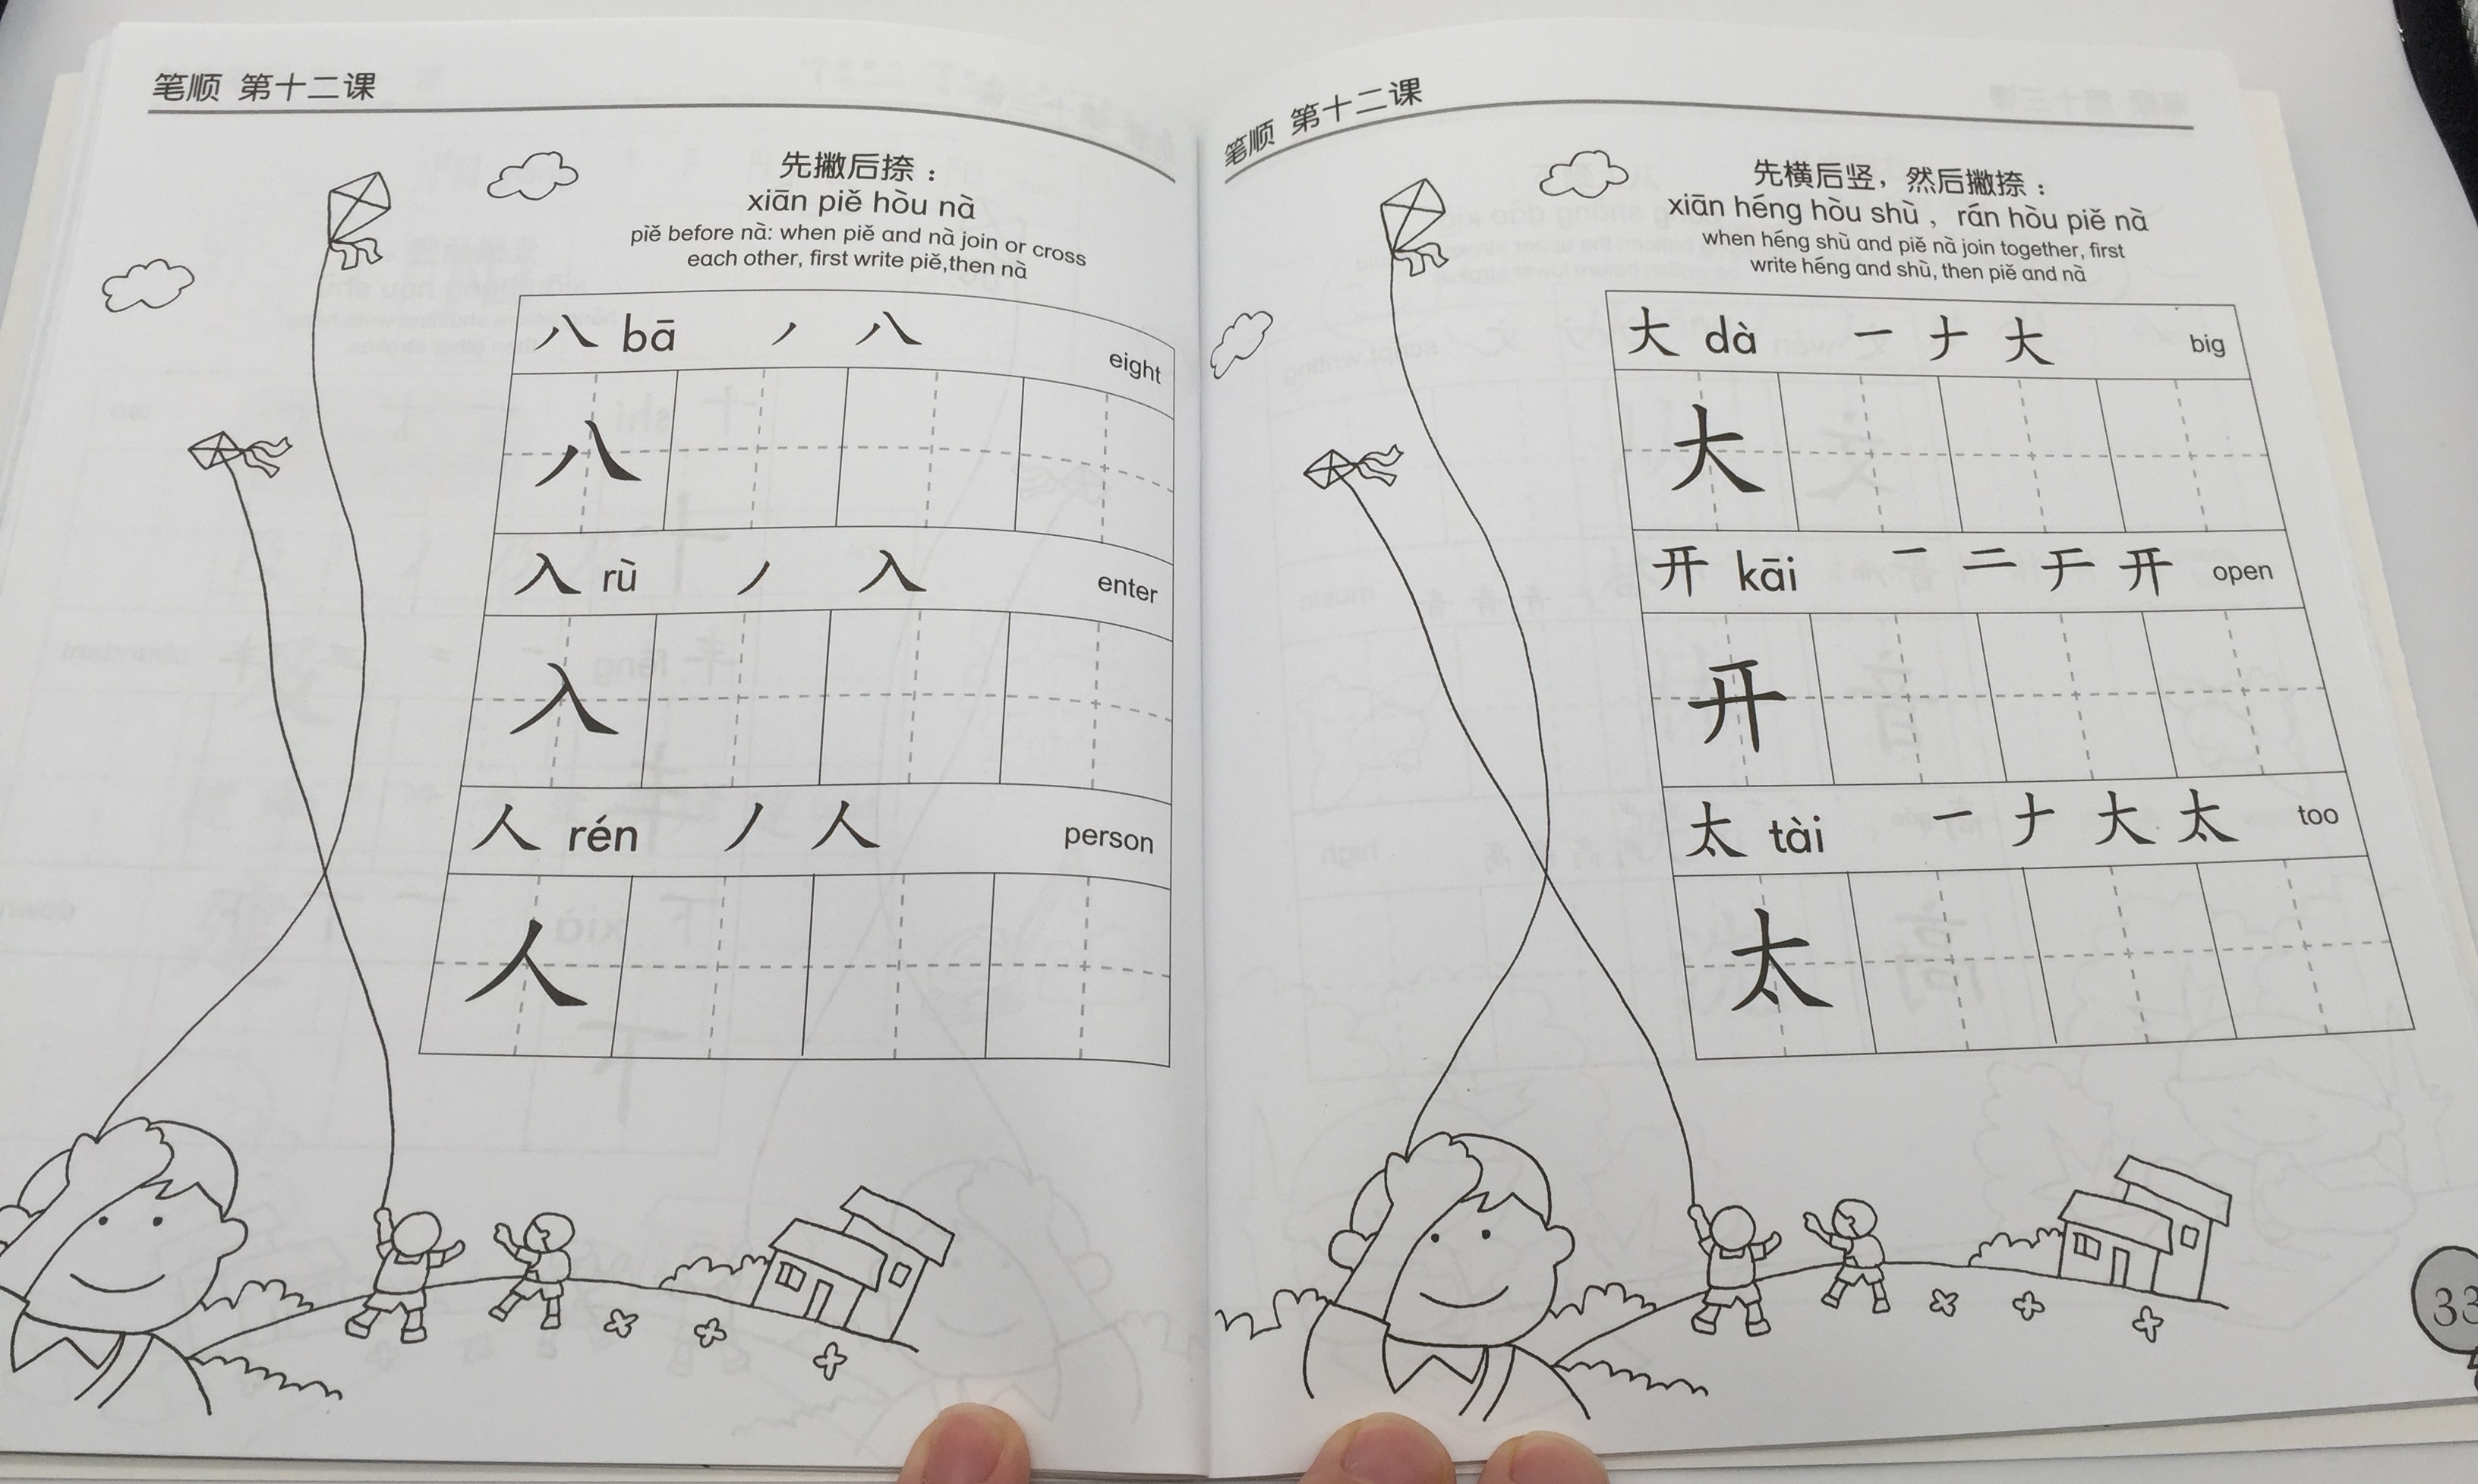 笔顺 第十二课
先撇后捺：
xiān piě hòu nà
piě before nà: when piě and nà join or cross
each other, first write piě,then nà
八 bā 丿 八 eight
八
入 rù 丿 入 enter
入
人 rén 丿 人 person
人
笔顺 第十二课
先横后竖，然后撇捺：
xiān héng hòu shù , rán hòu piě nà
when héng shù and piě nà join together, first
write héng and shù, then piě and nà
大 dà 一 ナ 大 big
大
开 kāi 一 二 于 开 open
开
太 tài 一 ナ 大 太 too
太
33